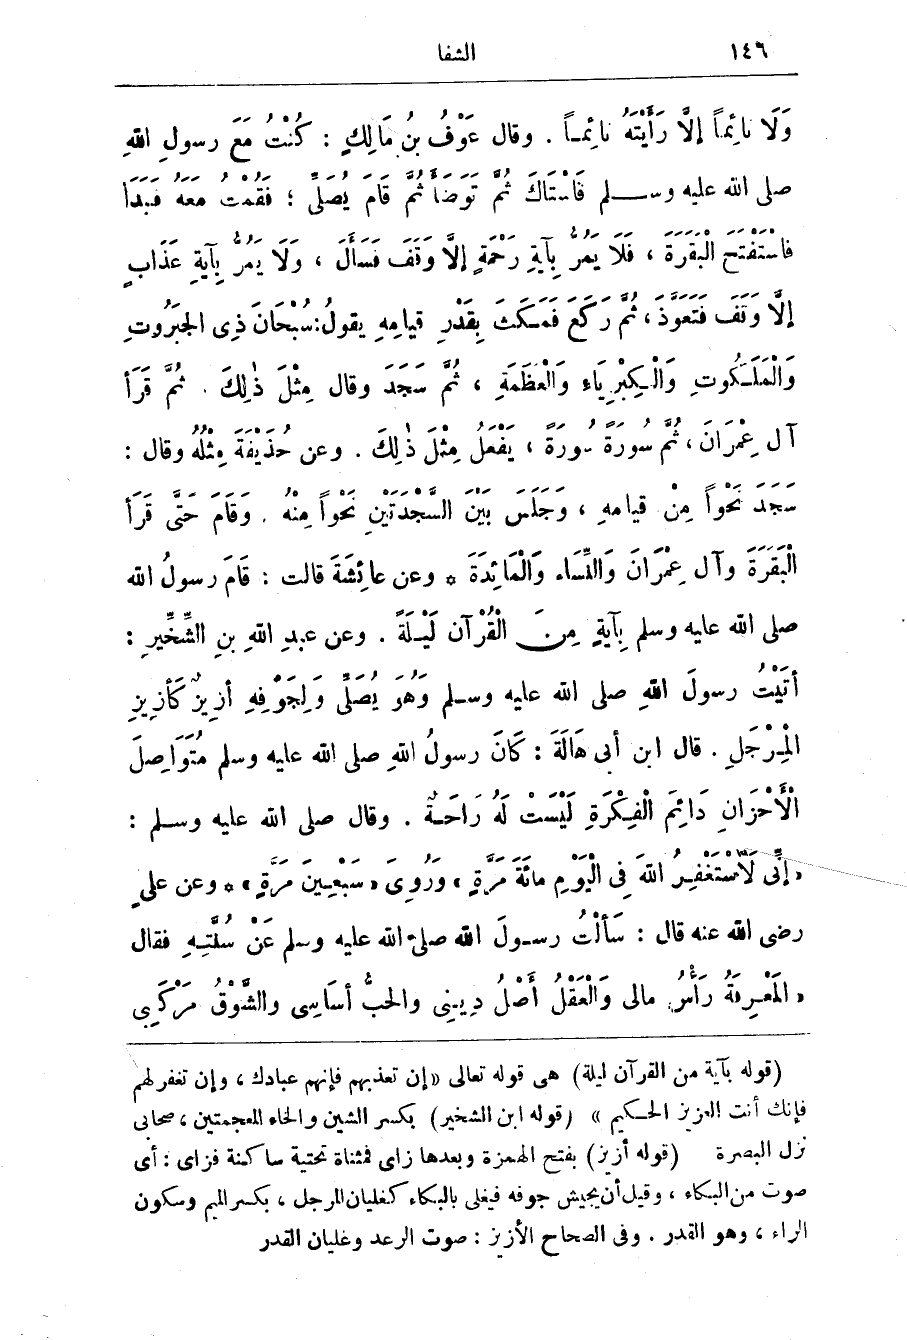 ١٤٦ الشفا
وَلَا نَائِماً إلَّا رَأَيْتَهُ نَائِمـاً . وقال عَوْفُ بنُ مَالِكٍ : كُنْتُ مَعَ رسولِ اللهِ
صلى الله عليه وســـلم فَاسْتَاكَ ثُمَّ تَوَضَّأَ ثُمَّ قَامَ يُصَلِّي ؛ فَقُمْتُ مَعَهُ فَبَدَأَ
فَاسْتَفْتَحَ الْبَقَرَةَ ، فَلَا يَمُرُّ بِآيَةِ رَحْمَةٍ إلَّا وَقَفَ فَسَأَلَ ، وَلَا يَمُرُّ بِآيَةِ عَذَابٍ
إلَّا وَقَفَ فَتَعَوَّذَ ، ثُمَّ رَكَعَ فَمَكَثَ بِقَدْرِ قيامِهِ يقولُ : سُبْحَانَ ذِى الجَبَرُوتِ
وَالْمَلَـكُوتِ وَالْـكِبْرِيَاءِ وَالْعَظَمَةِ ، ثُمَّ سَجَدَ وقال مِثْلَ ذٰلِكَ . ثُمَّ قَرَأَ
آلَ عِمْرَانَ ، ثُمَّ سُورَةً سُورَةً ، يَفْعَلُ مِثْلَ ذٰلِكَ . وعن حُذَيْفَةَ مِثْلُهُ وقال :
سَجَدَ نَحْواً مِنْ قيامِهِ ، وَجَلَسَ بَيْنَ السَّجْدَتَيْنِ نَحْواً مِنْهُ . وَقَامَ حَتَّى قَرَأَ
الْبَقَرَةَ وآلَ عِمْرَانَ وَالنِّسَاءَ وَالْمَائِدَةَ * وعن عائِشَةَ قالت : قَامَ رسولُ الله
صلى الله عليه وسلم بِآيَةٍ مِنَ الْقُرْآنِ لَيْـلَةً . وعن عبدِ اللهِ بنِ الشِّخِّيرِ :
أَتَيْتُ رسولَ اللهِ صلى الله عليه وسـلم وَهُوَ يُصَلِّي وَلِجَوْفِهِ أَزِيزٌ كَأَزِيزِ
الْمِرْجَلِ . قال ابن أبى هَالَةَ : كَانَ رسولُ اللهِ صلى الله عليه وسلم مُتَوَاصِلَ
الْأَحْزَانِ دَائِمَ الْفِكْرَةِ لَيْسَتْ لَهُ رَاحَـةٌ . وقال صلى الله عليه وسـلم :
« إنِّى لَأَسْتَغْفِرُ اللهَ فى الْيَوْمِ مائَةَ مَرَّةٍ » وَرُوِىَ « سَبْعِينَ مَرَّةٍ » * وعن علىٍّ
رضى الله عنه قال : سَأَلْتُ رسـولَ الله صلى الله عليه وسلم عَنْ سُنَّتِـهِ فقال
« المَعْرِفَةُ رَأْسُ مالى وَالْعَقْلُ أَصْلُ دِيـنِى والحبُّ أسَاسِى والشَّوْقُ مَرْكَبِى
(قوله بآية من القرآن ليلة) هى قوله تعالى « إن تعذبهم فإنهم عبادك ، وإن تغفر لهم
فإنك أنت العزيز الحـكيم » (قوله ابن الشخير) بكسر الشين والخاء المعجمتين ، صحابى
نزل البصرة (قوله أزيز) بفتح الهمزة وبعدها زاى فمثناة تحتية ساكنة فزاى : أى
صوت من البكاء ، وقيل أن يجيش جوفه فيغلى بالبكاء كغليان المرجل ، بكسر الميم وسكون
الراء ، وهو القدر . وفى الصحاح الأزيز : صوت الرعد وغليان القدر